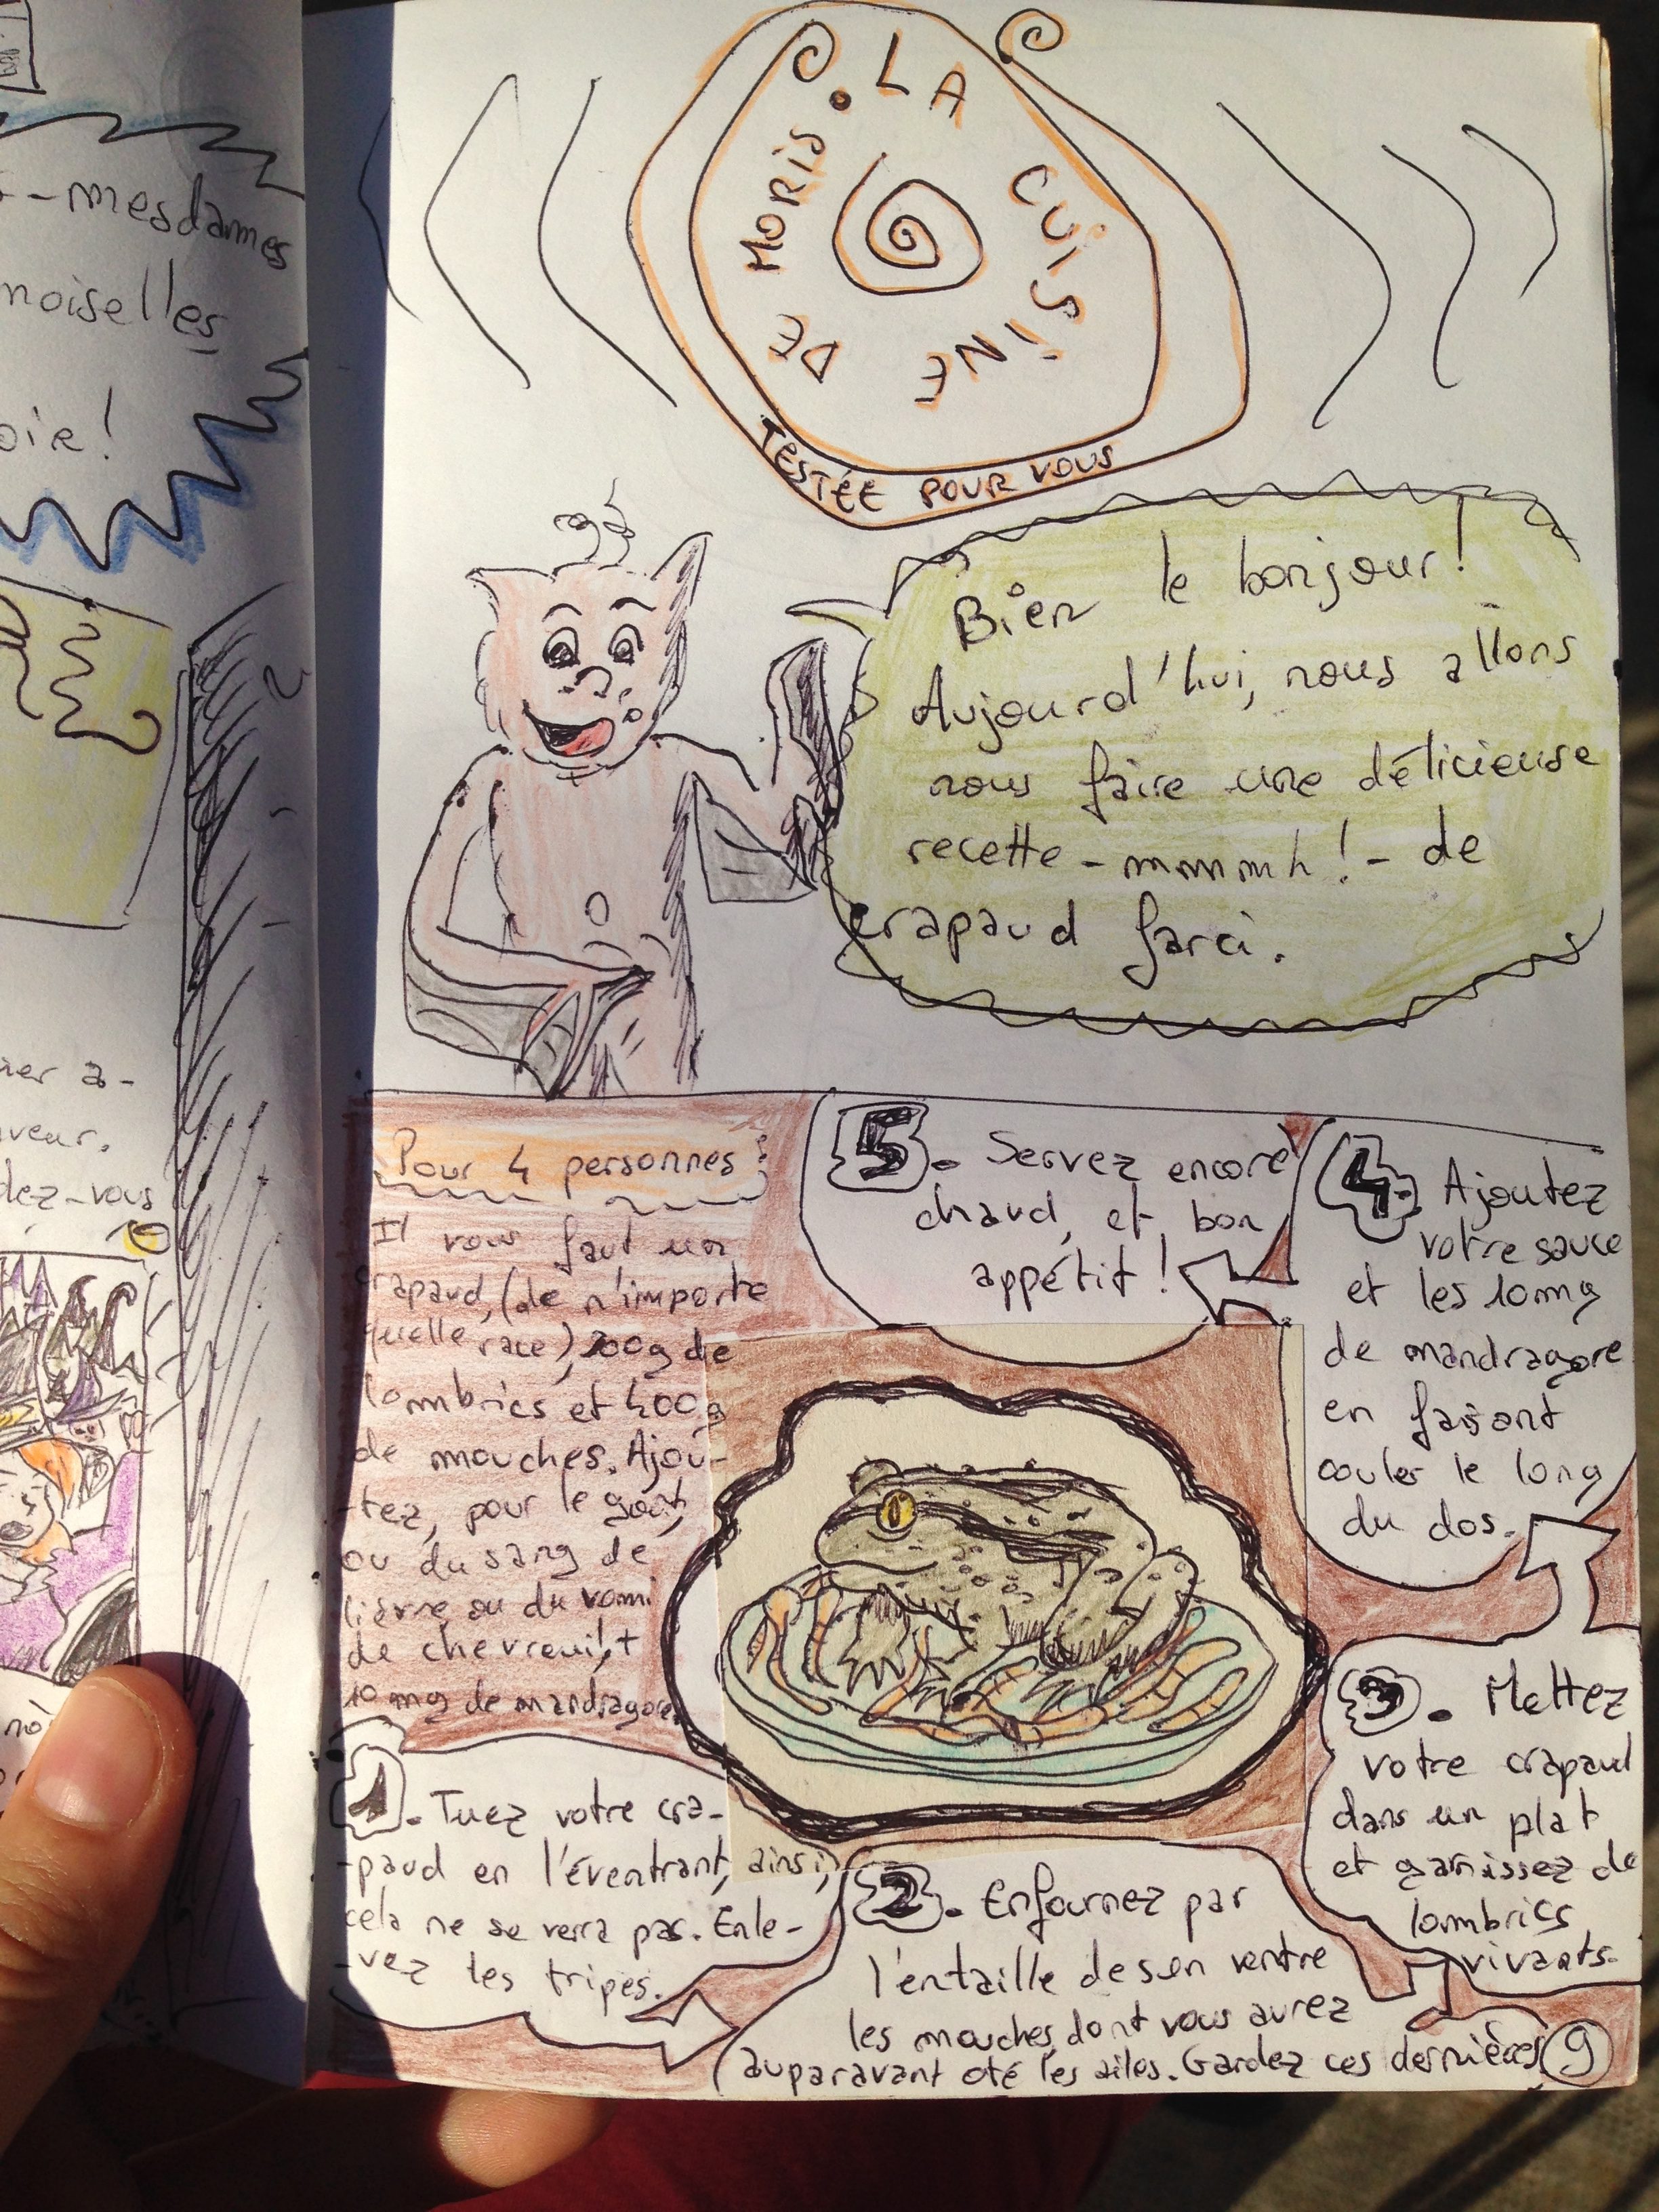 - mesdames
noiselles
oie!
ner a-
veur.
dez-vous
LA CUISINE DE MORIS.
TESTÉE POUR VOUS
Bien le bonjour!
Aujourd'hui, nous allons
nous faire une délicieuse
recette - mmmmh! - de
crapaud farci.
Pour 4 personnes:
Il vous faut un
crapaud, (de n'importe
quelle race), 200g de
lombrics et 400g
de mouches. Ajou-
-tez, pour le goût,
ou du sang de
lièvre ou du vomi
de chevreuil, +
10 mg de mandragore.
1. Tuez votre cra-
-paud en l'éventrant, ainsi,
cela ne se verra pas. Enle-
-vez les tripes.
2. Enfournez par
l'entaille de son ventre
les mouches, dont vous aurez
auparavant oté les ailes. Gardez ces dernières
3. Mettez
votre crapaud
dans un plat
et garnissez de
lombrics
vivants.
4. Ajoutez
votre sauce
et les 10mg
de mandragore
en faisant
couler le long
du dos.
5. Servez encore
chaud, et bon
appétit!
9